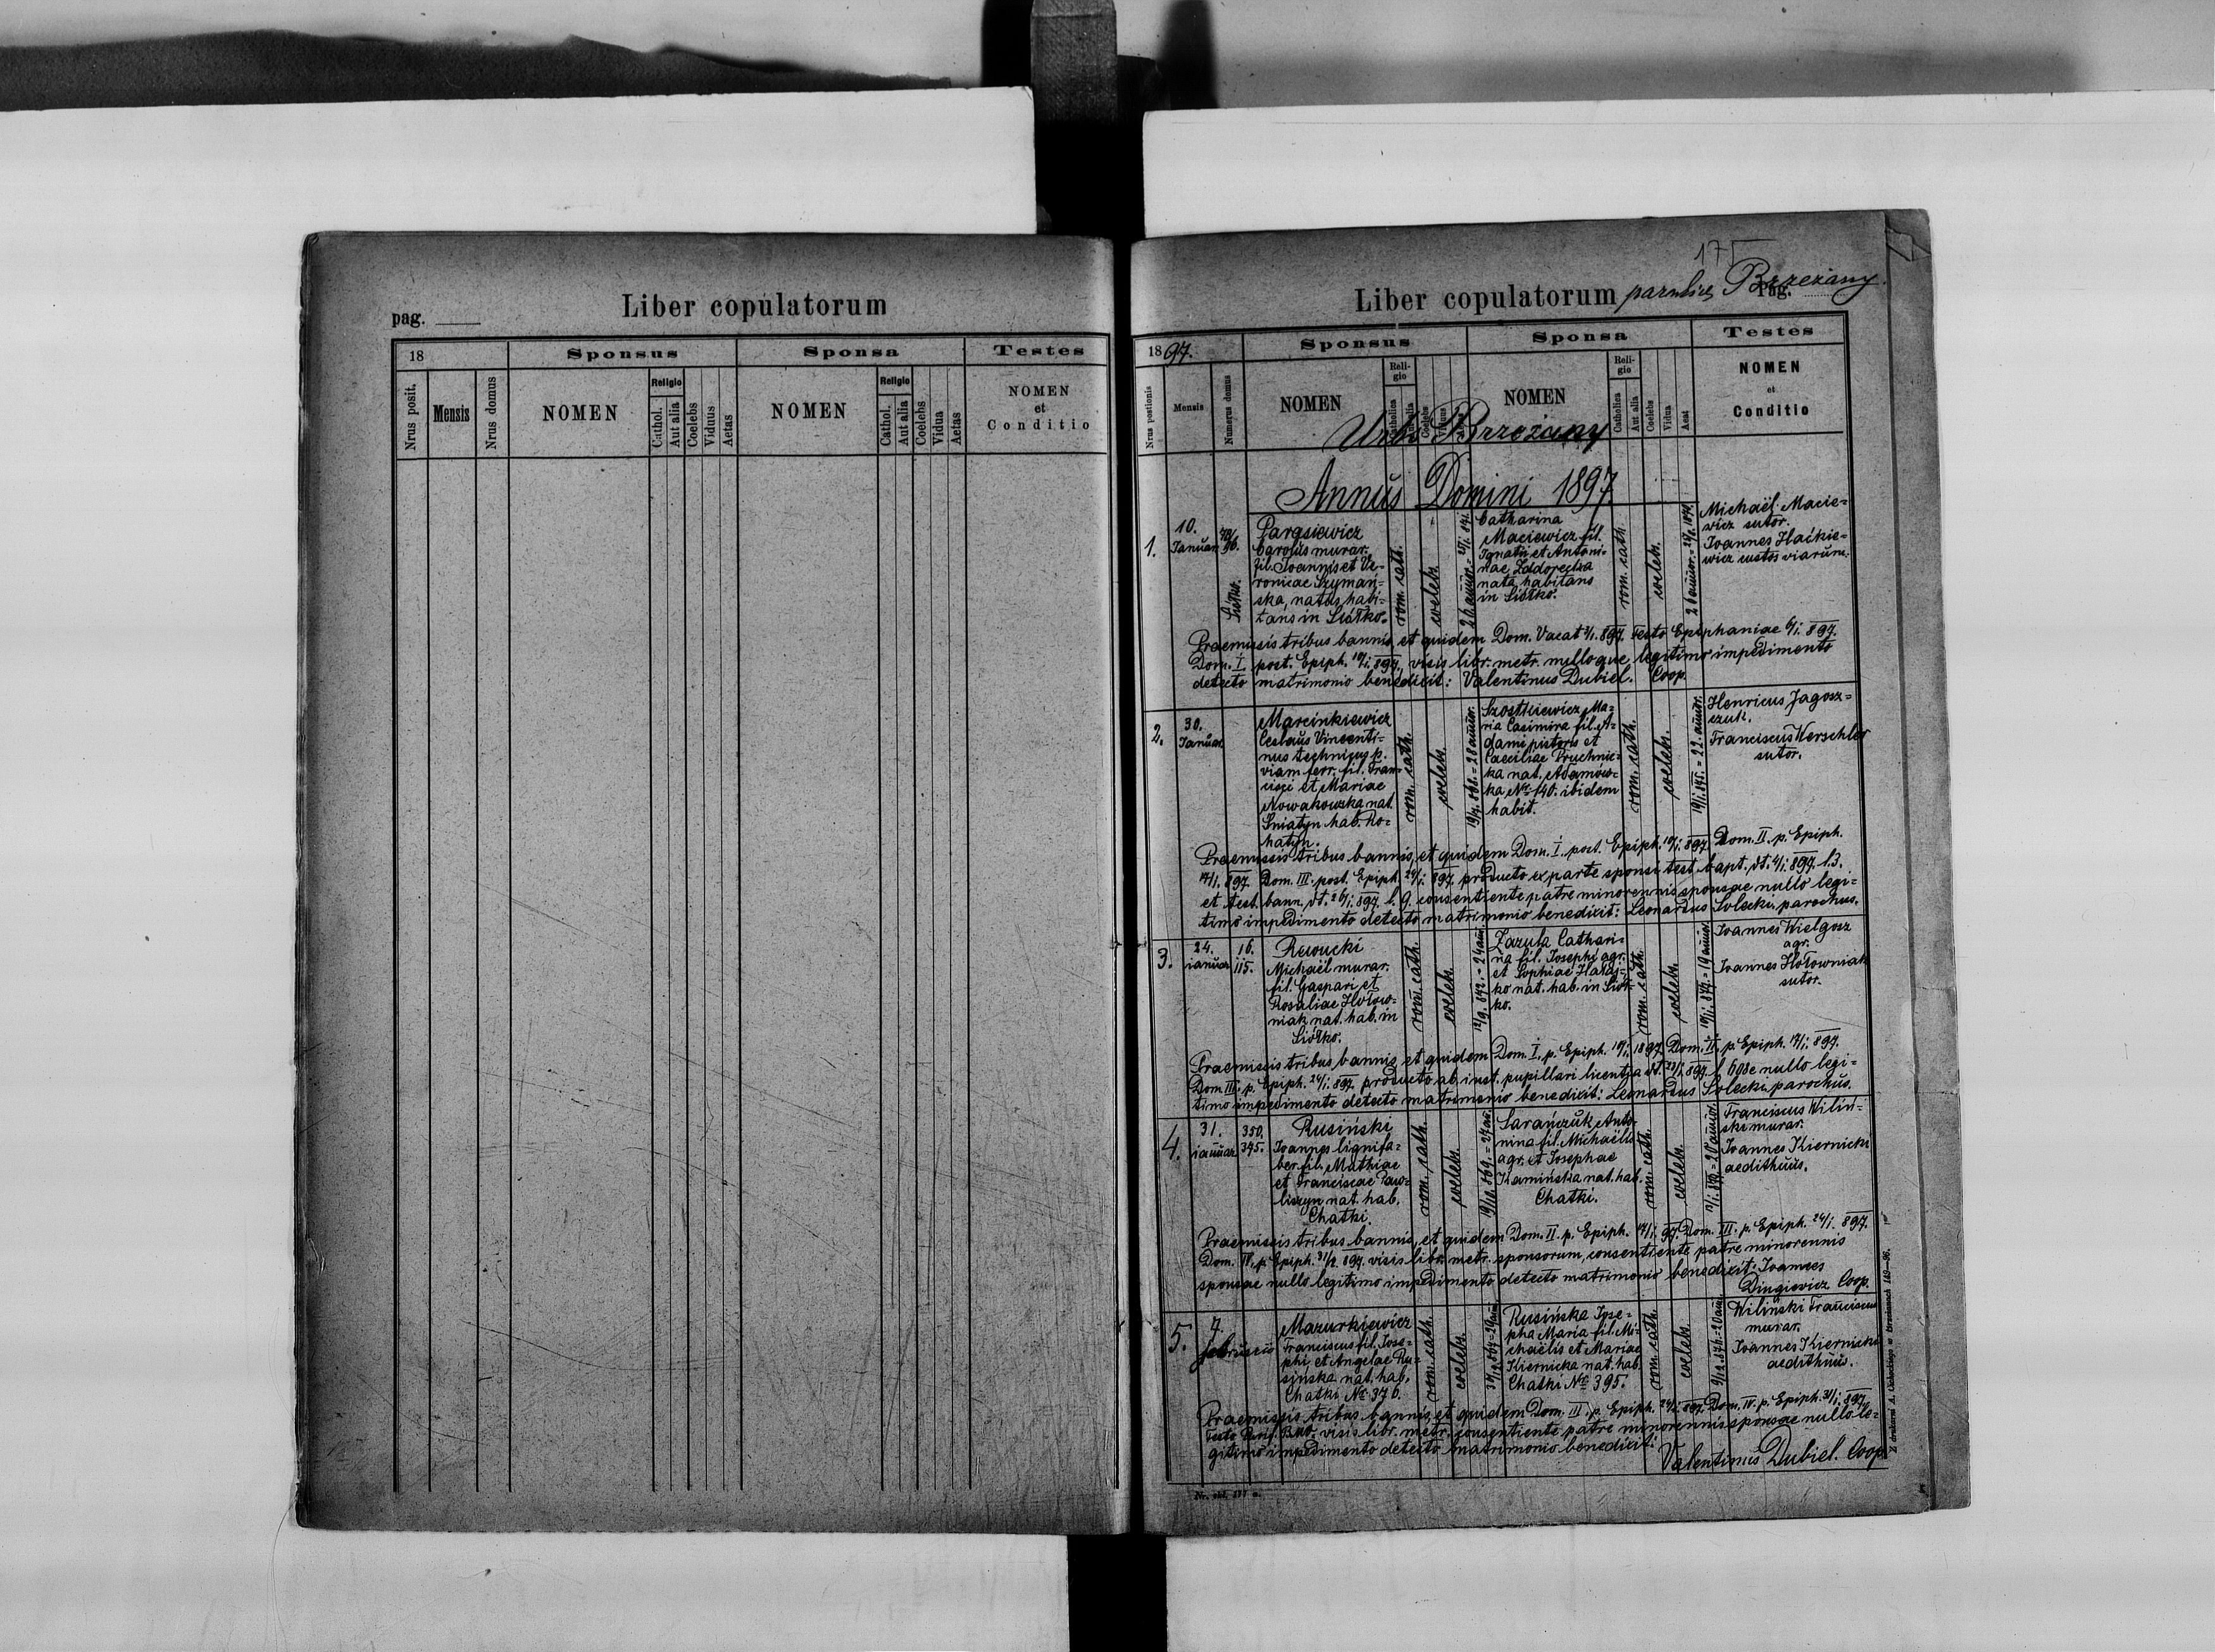 Liber copulatorum
pag.
18
Sponsus
Sponsa
Testes
Nrus posit.
Mensis
Nrus domus
NOMEN
Religio
Cathol.
Aut alia
Coelebs
Viduus
Aetas
NOMEN
Religio
Cathol.
Aut alia
Coelebs
Vidua
Aetas
NOMEN
et
Conditio
175
Liber copulatorum Brzeżany
Pag.
1897.
Sponsus
Sponsa
Testes
Nrus positionis
Mensis
Numerus domus
NOMEN
Reli-
gio
Catholica
Coelebs
NOMEN
Reli-
gio
Catholica
Aut alia
Coelebs
Vidua
Aeat
NOMEN
et
Conditio
Urbs Brzeżany
Annus Domini 1897
1.
10.
Januar
Carolus murar.
fil. Joannis et Ve-
ronicae Szymań-
ska, natus habi-
tans in Siółko.
rom. cath.
coelebs.
Catharina
Maciewicz fil.
Ignatii et Antoni-
nae Zadorecka
nata habitans
in Siółko.
rom. cath
coelebs.
Michaël Macie-
wicz sutor.
Joannes Haćkie-
wicz custos viarum.
Praemissis tribus bannis, et quidem Dom. Vacat 3/1. 897. Festo Epiphaniae 6/1. 897.
Dom. I post. Epiph. 10/1. 897., visis libr. metr. nulloque legitimo impedimento
detecto matrimonio benedixit: Valentinus Dubiel. Coop.
2.
30.
Januar
Marcinkiewicz
Ceslaus Vincenti-
nus technicus p.
viam ferr. fil. Fran-
cisci et Mariae
Nowakowska nat.
Śniatyn hab. Ro-
hatyn.
rom. cath.
coelebs.
Szostkiewicz Ma-
ria Casimira fil. A-
dami pistoris et
Caeciliae Pruchnic-
ka nat. Adamów-
ka, № 140. ibidem
habit.
rom. cath.
coelebs.
Henricus Jagosz-
czuk.
Franciscus Kerschler
sutor.
Praemissis tribus bannis, et quidem Dom. I. post. Epiph. 10/1. 897 Dom. II. p. Epiph.
17/1. 897. Dom. III. post. Epiph. 24/1. 897. producto ex parte sponsi test. bapt. dt. 4/1. 897. l. 3.
et test. bann. dt. 26/1. 897. l. 9. consentiente patre minorennis sponsae nullo legi-
timo impedimento detecto matrimonio benedixit: Leonardus Solecki, parochus.
3.
24.
ianuar
16.
115.
Rewucki
Michaël murar.
fil. Gaspari et
Rosaliae Hołow-
niak nat. hab. in
Siółko.
rom. cath.
coelebs.
Zazula Cathari-
na fil. Josephi agr.
ko nat. hab. in Siół-
ko.
rom. cath.
coelebs.
Joannes Wielgosz
agr.
Joannes Hołowniak
sutor.
Praemissis tribus bannis, et quidem Dom. I. p. Epiph. 10/1. 1897. Dom. II. p. Epiph. 17/1. 897.
Dom. III. p. Epiph. 24/1. 897. producto ab inst. pupillari licentia dt. 897. nullo legi-
timo impedimento detecto matrimonio benedixit: Leonardus Solecki, parochus.
4.
31.
ianuar
350.
345.
Rusiński
Joannes lignifa-
ber fil. Mathiae
et Franciscae Paw-
liszyn nat. hab.
Chatki.
rom. cath.
coelebs.
Sarańczuk Anto-
nina fil. Michaëlis
agr. et Josephae
Kamińska nat. hab.
Chatki.
rom. cath.
coelebs.
Franciscus Wiliń-
ski murar.
Joannes Kiernicki
aedithuus.
Praemissis tribus bannis, et quidem Dom. II. p. Epiph. 17/1. 97. Dom. III. p. Epiph. 24/1. 897.
Dom. IV. p. Epiph. 897. visis libr. metr. sponsorum, consentiente patre minorennis
sponsae nullo legitimo impedimento detecto matrimonio benedixit: Joannes
Coop.
5.
7.
Mazurkiewicz
Franciscus fil. Jose-
phi et Angelae Ru-
sinska nat. hab.
Chatki № 376.
rom. cath.
coelebs.
Rusińska Jose-
pha Maria fil. Mi-
chaëlis et Mariae
Kiernicka nat. hab.
Chatki № 395.
rom. cath.
coelebs.
Wiliński Franciscus
murar.
Joannes Kiernicki
aedithuus.
Praemissis tribus bannis, et quidem Dom. III. p. Epiph. 24/1. 897. Dom. IV. p. Epiph. 31/1. 897.
Festo Purif. visis libr. metr. consentiente patre minorennis sponsae nullo le-
gitimo impedimento detecto matrimonio benedixit:
Valentinus Dubiel. Coop